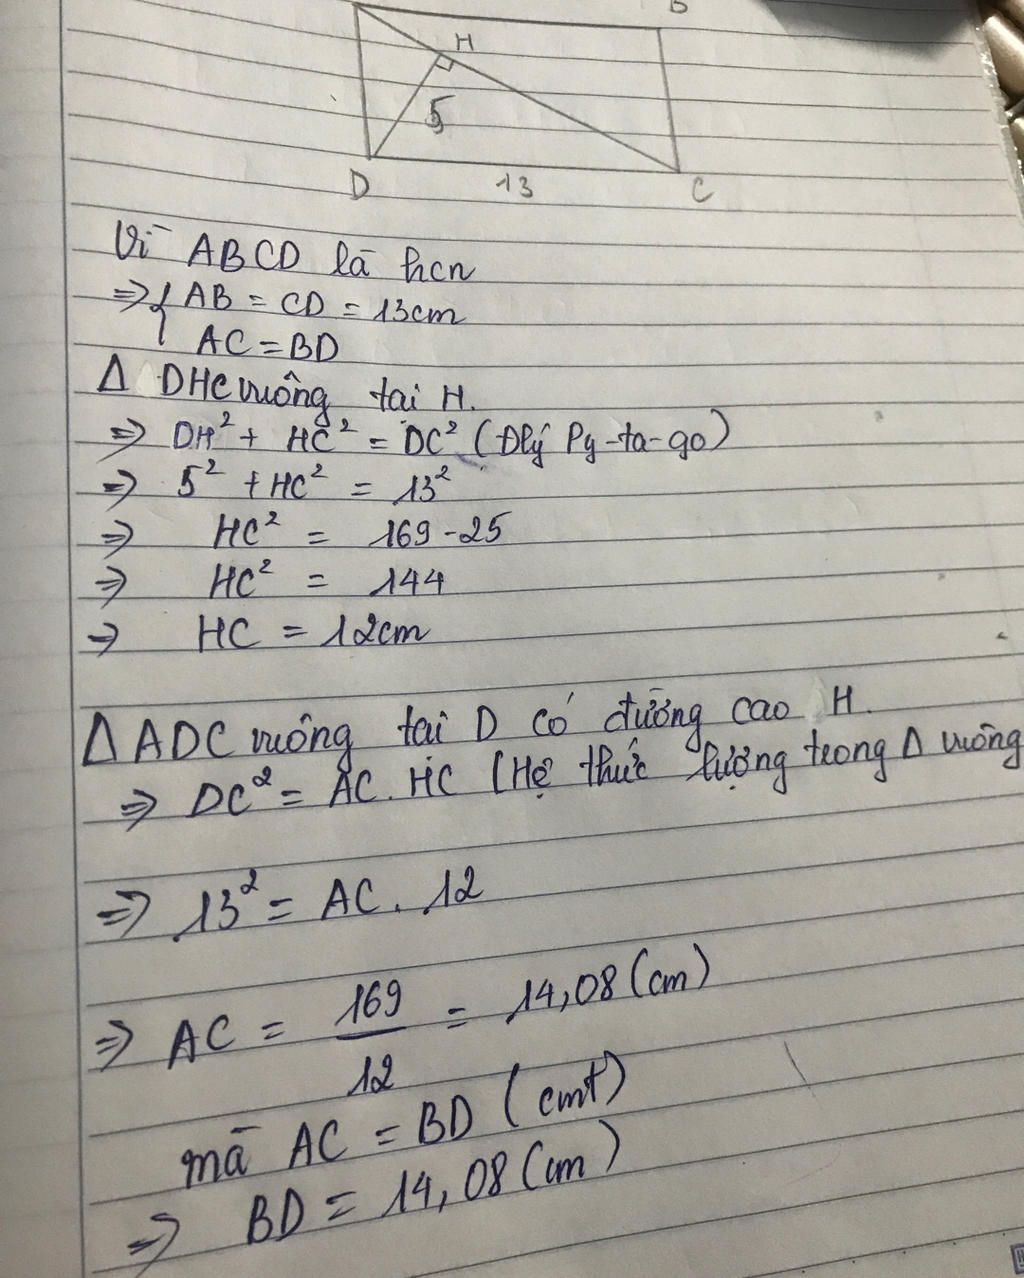 B
H
5
D 13 C
Vì ABCD là hcn
⇒ { AB = CD = 13cm
AC = BD
Δ DHC vuông tại H.
⇒ DH² + HC² = DC² (Đlý Py-ta-go)
⇒ 5² + HC² = 13²
⇒ HC² = 169 - 25
⇒ HC² = 144
⇒ HC = 12cm
Δ ADC vuông tại D có đường cao H.
⇒ DC² = AC . HC (Hệ thức lượng trong Δ vuông
⇒ 13² = AC . 12
⇒ AC = 169/12 = 14,08 (cm)
mà AC = BD (cmt)
⇒ BD = 14,08 (cm)